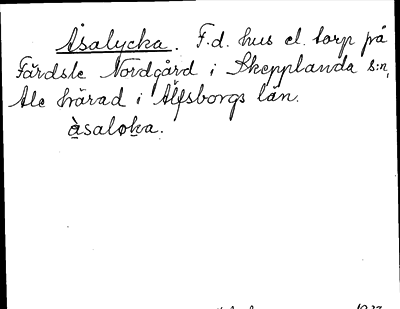 Åsalycka. F.d. hus el. torp på
Färdsle Nordgård i Skepplanda s:n,
Ale härad i Älfsborgs län.
åsaloka.